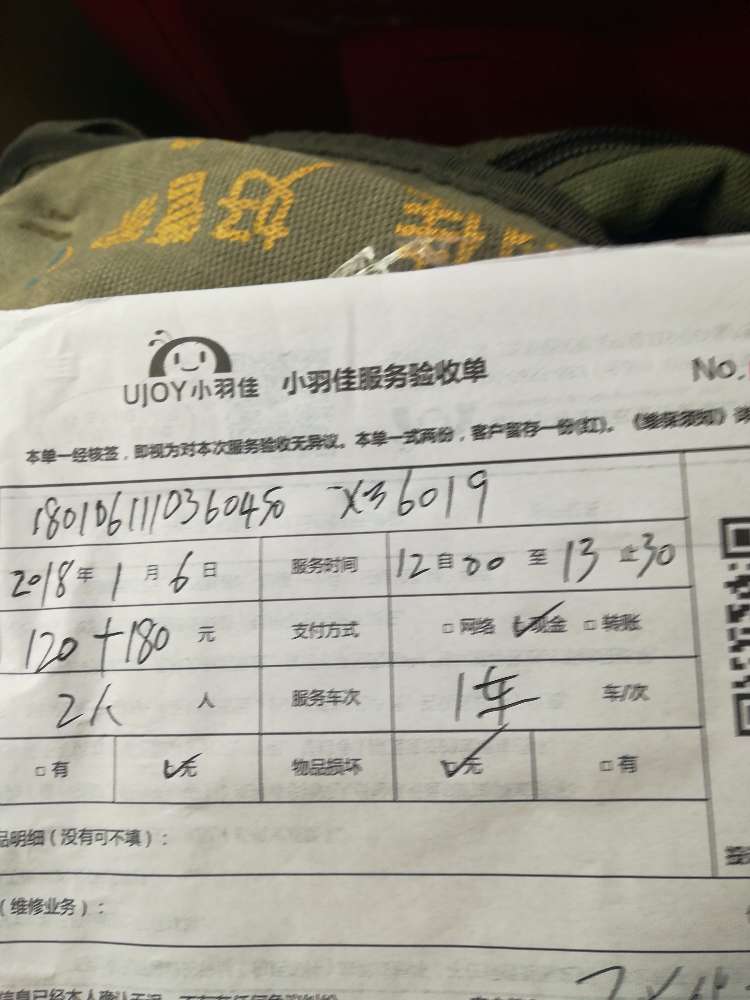 UJOY小羽佳 小羽佳服务验收单 No.
本单一经核签，即视为对本次服务验收无异议。本单一式两份，客户留存一份(红)。《维保须知》详
1801061110360450 X36019
2018年1月6日 服务时间 12自00至13止30
120+180元 支付方式 □网络 ☑现金 □转账
2人 人 服务车次 1车 车/次
□有 ☑无 物品损坏 ☑无 □有
品明细（没有可不填）：
（维修业务）：